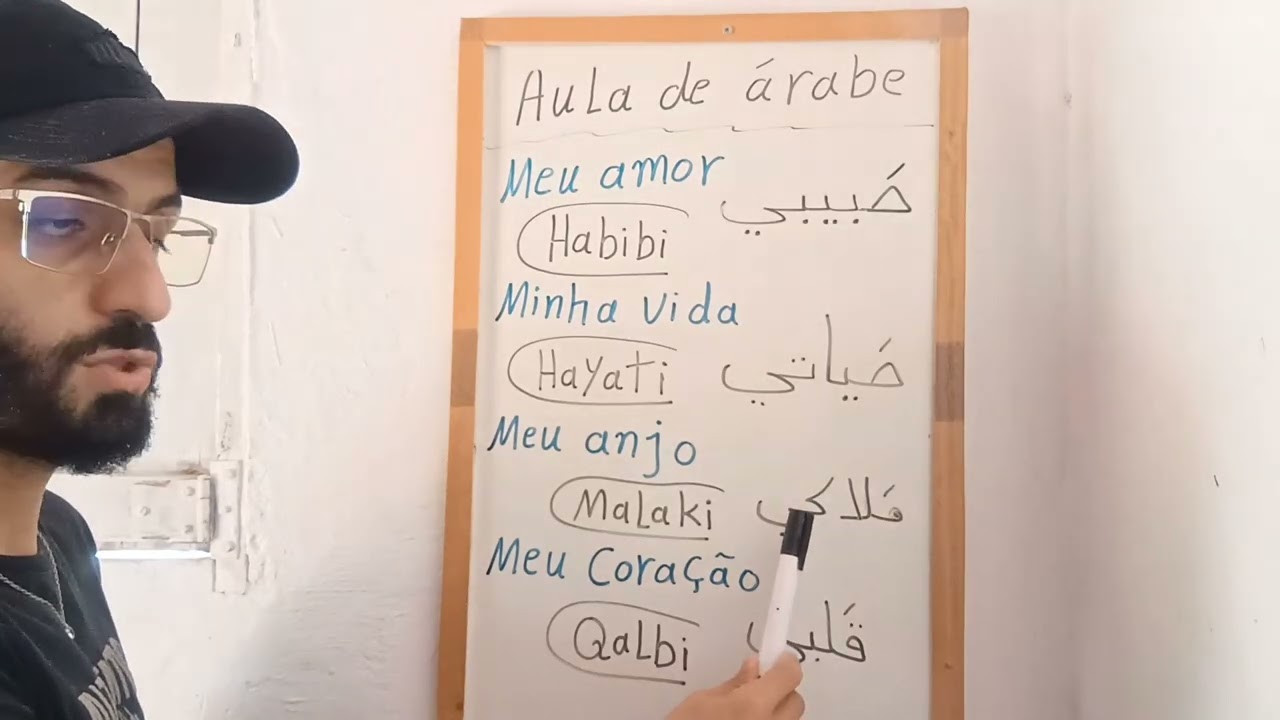 Aula de árabe
Meu amor
Habibi حَبيبي
Minha vida
Hayati حَياتي
Meu anjo
Malaki مَلاكي
Meu Coração
Qalbi قَلبي